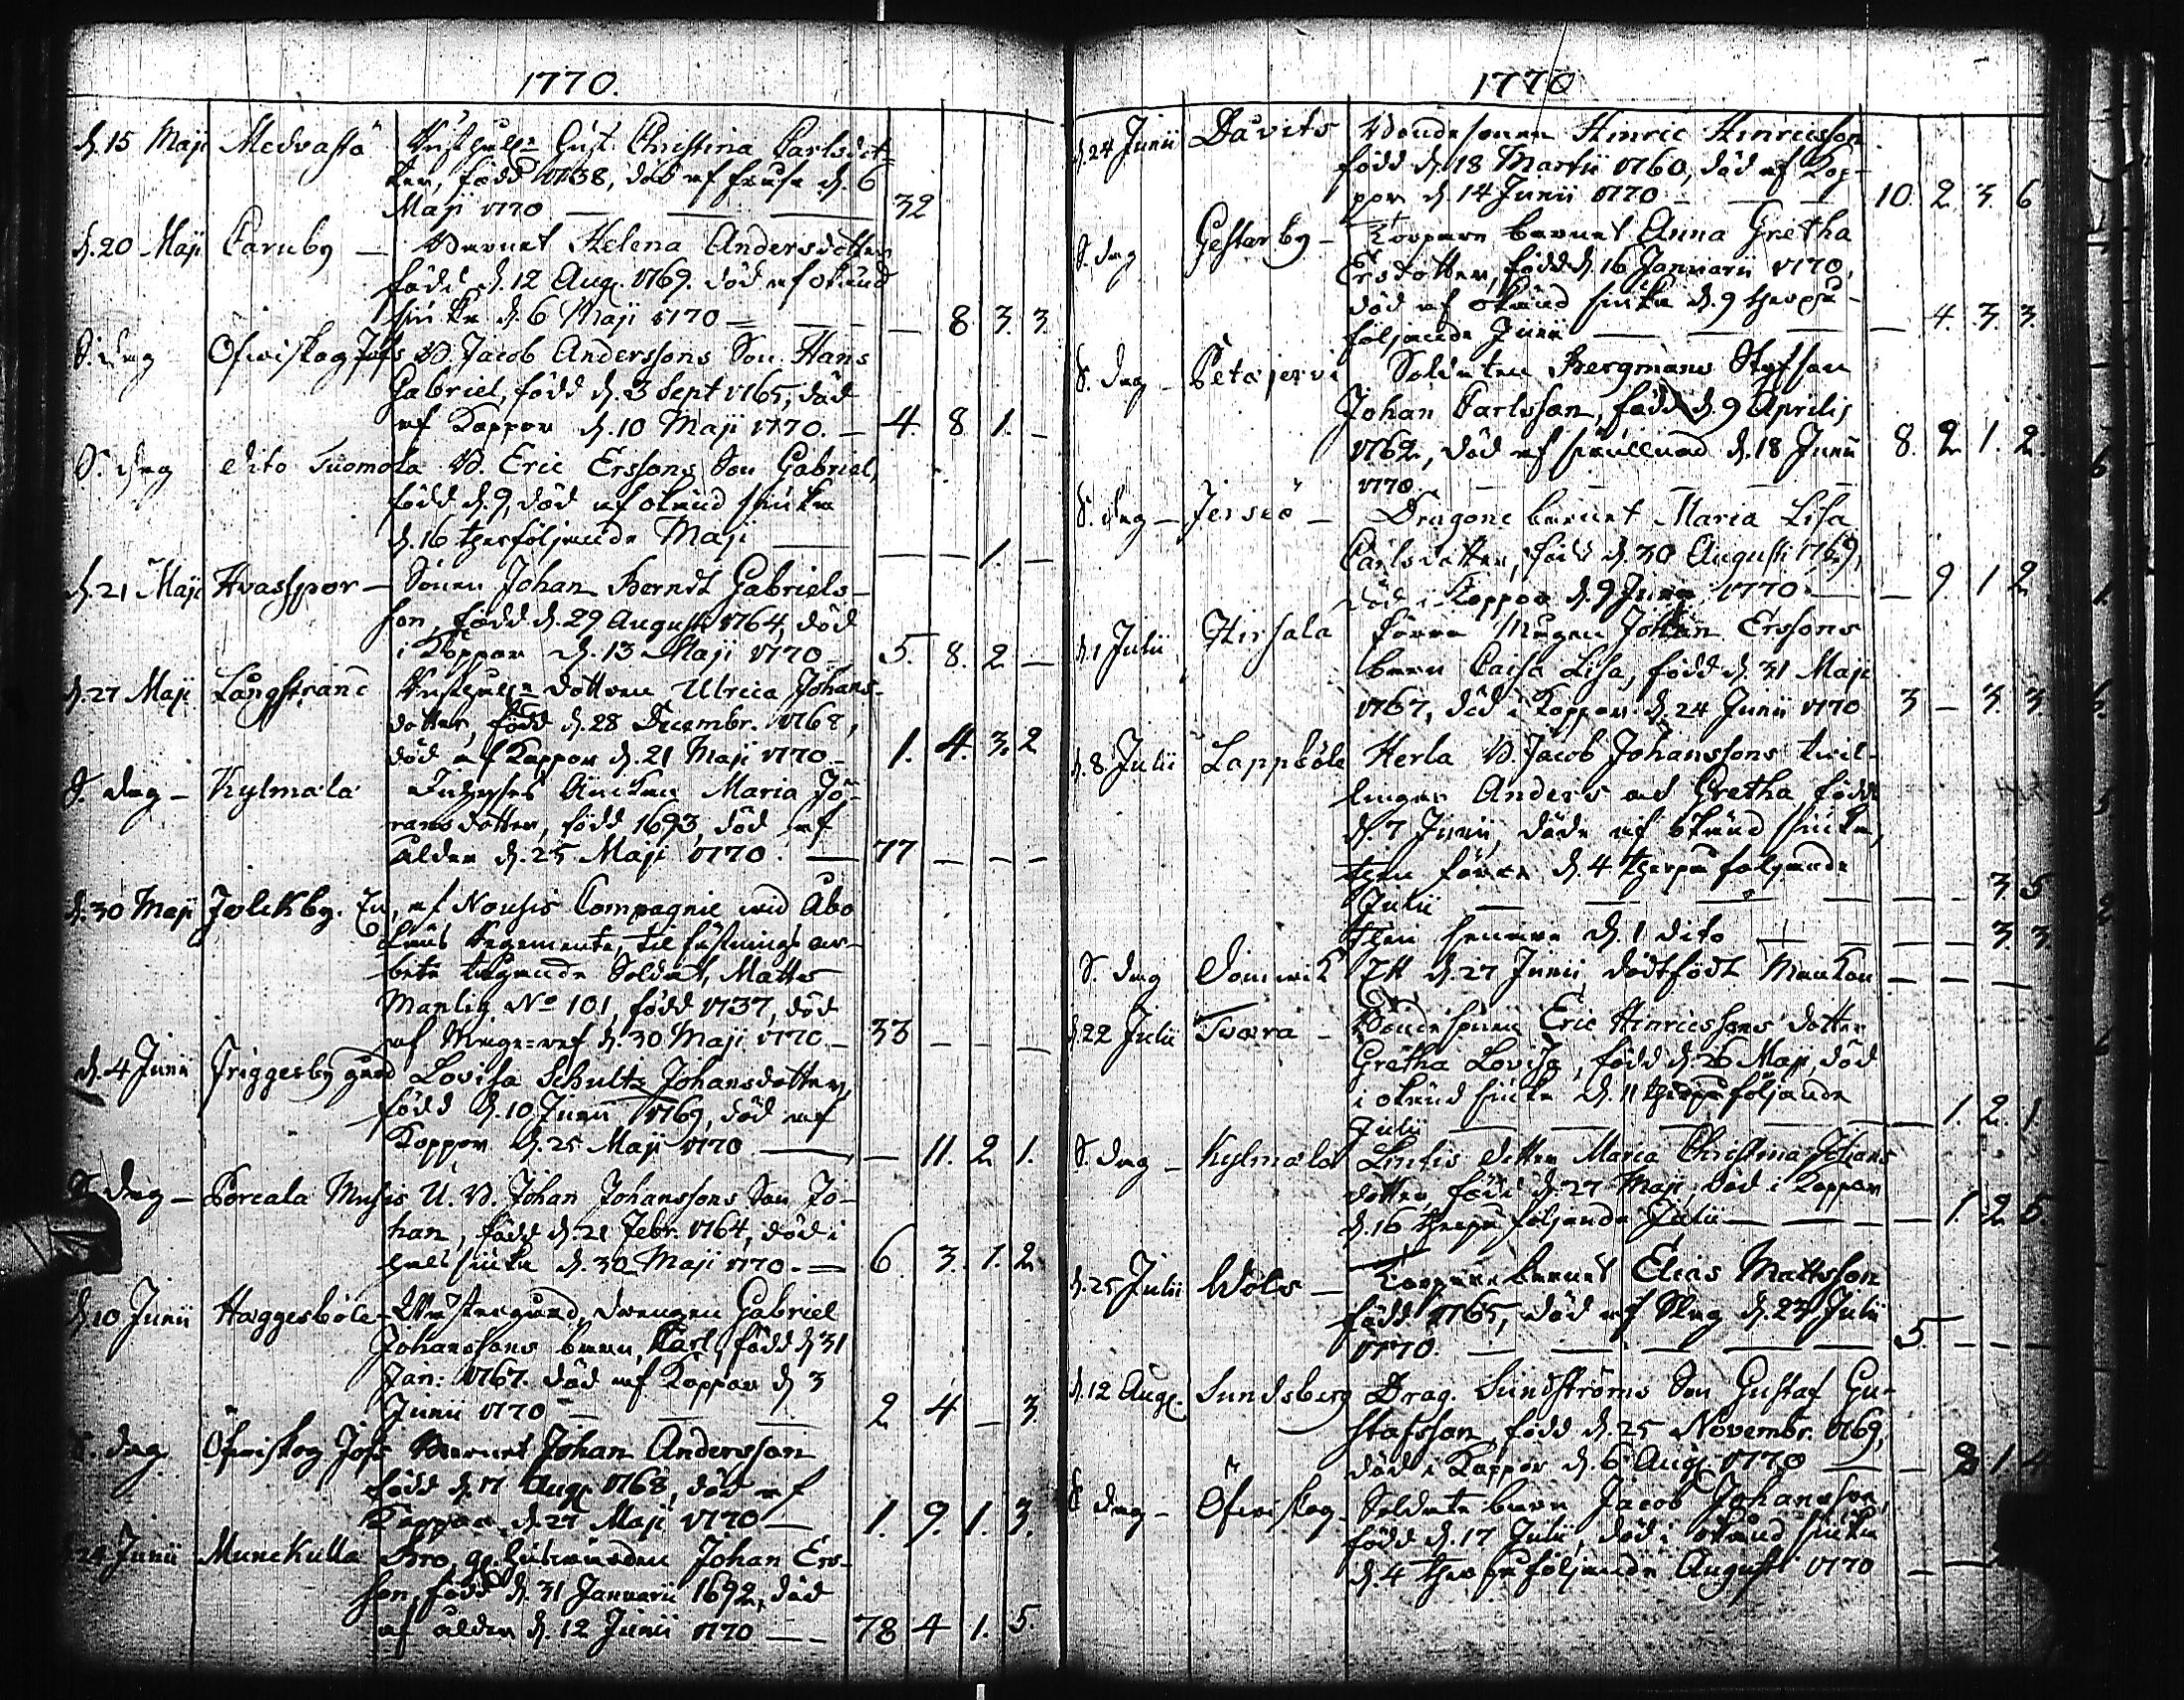 1770.
d. 15 Maji Medvastö Gust. Christina Carlsdot=
ter, född 1738, död af d. 6
Maji 1770 — — — 32
d. 20 Maji Caruby — Barnet Helena Andersdotter
född d. 12 Aug. 1769. död af okänd
siuka d. 6 Maji 1770 — — — 8. 3. 3.
S. dag Öfwiskog Jofs B. Jacob Anderssons Son Hans
Gabriel, född d. 3 Sept 1765, död
af Koppor d. 10 Maji 1770. — 4. 8. 1. —
S. dag dito Tuomola B. Eric Erssons Son Gabriel,
född d. 9, död af okänd siuka
d. 16 therföljande Maji — — — 1. —
d. 21 Maji Hvassport — Sonen Johan Berndt Gabriels-
son, född d. 29 Augusti 1764, död
i Koppor d. 13 Maji 1770 5. 8. 2. —
d. 27 Maji Långstrand dottren Ulrica Johans-
dotter, född d. 28 Decembr. 1768,
död af Koppor d. 21 Maji 1770 — 1. 4. 3. 2
S. dag — Kylmälä Änckan Maria Jö-
ransdotter, född 1693, död af
ålder d. 25 Maji 1770. — 77 — — —
d. 30 Maji Jolckby. En, af Nousis Compagnie wid Åbo
Läns Regemente, til fästnings ar-
bete Soldat, Matts
Manlig No 101, född 1737, död
af d. 30 Maji 1770 — 33 — — —
d. 4 Junii Friggesby gård Lovisa Schultz Johansdotter,
född d. 10 Junii 1769, död af
Koppor d. 25 Maji 1770 — — 11. 2. 1.
S. dag — Porcala U. B. Johan Johanssons Son Jo-
han, född d. 21 Febr. 1764, död i
siuka d. 30 Maji 1770. — 6. 3. 1. 2.
d. 10 Junii Häggesböle — Wästergård, drengen Gabriel
Johanssons barn, Carl, född d 31
Jan: 1767. död af Koppor d 3
Junii 1770 — — — 2. 4. — 3.
S. dag Öfwiskog Jofs Barnet Johan Andersson
född d. 17 Aug. 1768, död af
Koppor d. 27 Maji 1770 — 1. 9. 1. 3.
24 Junii Munckulla Bro, Johan Ers-
son, född d. 31 Januarii 1692, död
af ålder d. 12 Junii 1770 — — 78 4 1. 5.
1770
d. 24 Junii Davits Bondesonen Hinric Hinricsson
född d. 18 Martii 1760, död af Kop-
por d. 14 Junii 1770 — 10. 2. 3. 6
S. dag Gesterby — Torpare barnet Anna Gretha
Ersdotter, född d. 16 Januarii 1770,
död af okänd siuka d. 9 therpå-
följande Junii — — — 4. 3. 3.
S. dag — Petäjervi Soldaten Bergmans Styfson
Johan Carlsson, född d. 9 Aprilis
1762, död af d. 18 Junii 8. 2. 1. 2.
1770. — — —
S. dag — Jersiö — Dragone barnet Maria Lisa
Carlsdotter, född d. 30 Augusti 1769,
död i Koppor d. 9 Junii 1770 — 9. 1 2
d. 1 Julii Hirsala Johan Erssons
barn Caisa Lisa, född d. 31 Maji
1767, död i Koppor d. 24 Junii 1770 3 — 3. 3.
d. 8 Julii Lappböle Herla B. Jacob Johanssons twil-
lingar Anders och Gretha född
d. 7 Junii, döde af okänd siuka,
then förra d. 4 therpå följande
Julii — — — 3. 5.
then senare d. 1 dito — — — 3. 3
S. dag Domwik Ett d. 27 Junii dödfödt — — —
d. 22 Julii Tvara — Bondesonen Eric Hinricssons dotter
Gretha Lovisa, född d. 26 Maji, död
i okänd siuka d. 11 therpåföljande
Julii — — — 1. 2. 1.
S. dag — Kylmälä dotter Maria Christina Johans
dotter, född d. 27 Maji, död i Koppor
d. 16 therpå följande Julii — — — 1. 2. 5.
d. 25 Julii Wols — Torpare barnet Elias Mattsson
född 1765, död af Slag d. 23 Julii
1770. — — — 5. — — —
d. 12 Aug. Sundsberg Drag. Sundströms Son Gustaf Gu-
stafsson, född d. 25 Novembr. 1769,
död i Koppor d. 6 Aug. 1770 — — 8 1 4
S dag — Öfwiskog Soldate barn Jacob Johansson,
född d. 17 Julii, död i okänd siuka
d. 4 therpåföljande Augusti 1770 — —